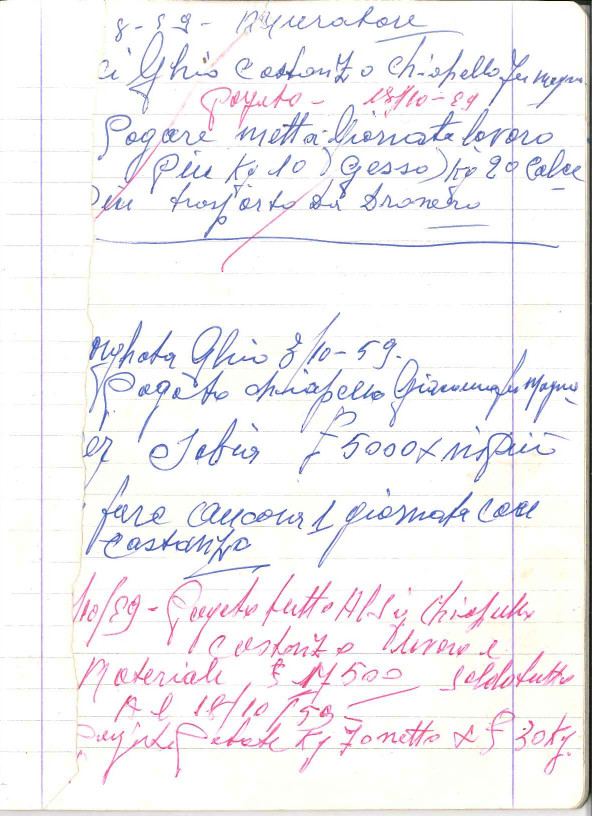 8-59- Muratore
Ghio Costanzo Chiapello fu Magn
Pogato - 18/10-59
Pogare metta Giornata lavoro
Piu Kg 10 (Gesso) Kg 20 Calce
Piu trasporto da Dronero
Ghio 3/10-59.
Pogato Chiapello Giacomo fu Magno
er Sabia £ 5000 x
fare ancora 1 giornata con
Costanzo
10/59 - Pogato tutto Al Sig Chiapello
Costanzo lavoro e
Materiale £ 17500 soldo tutto
Al 18/10/59 -
Patate Kg 70 netto x £ 30 Kg.